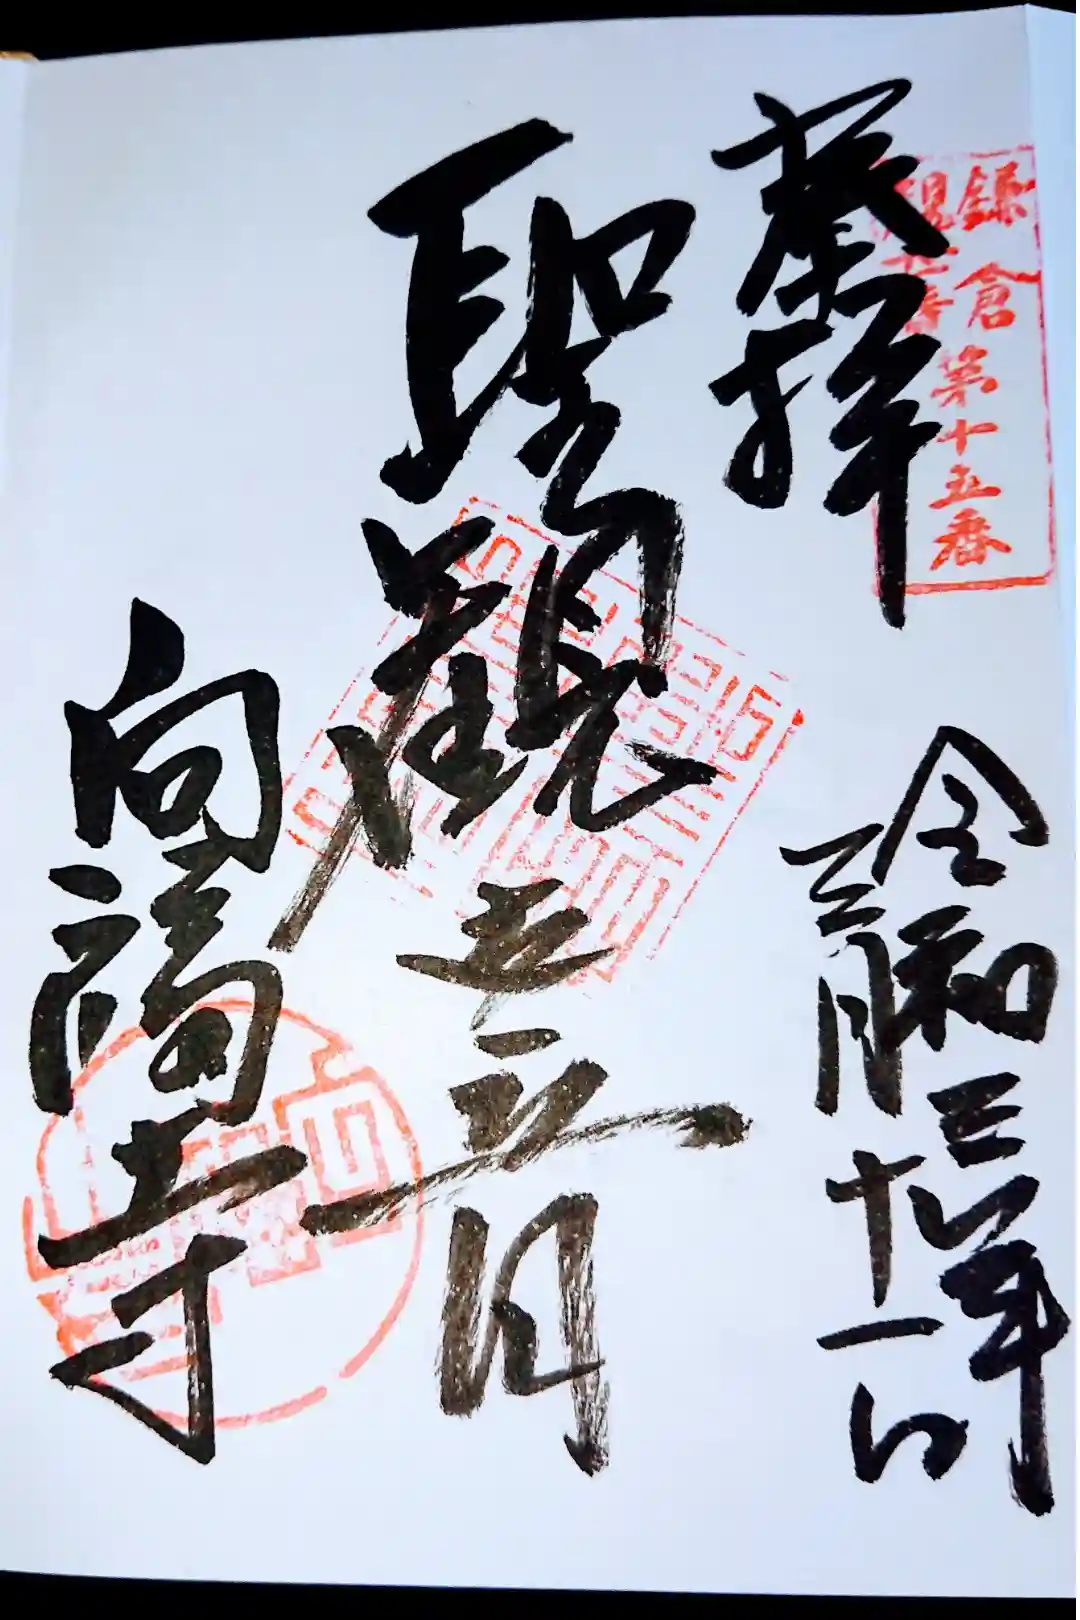 鎌倉
観世音
第十五番
奉拝
令和三年
三月十一日
聖觀世音
向福寺